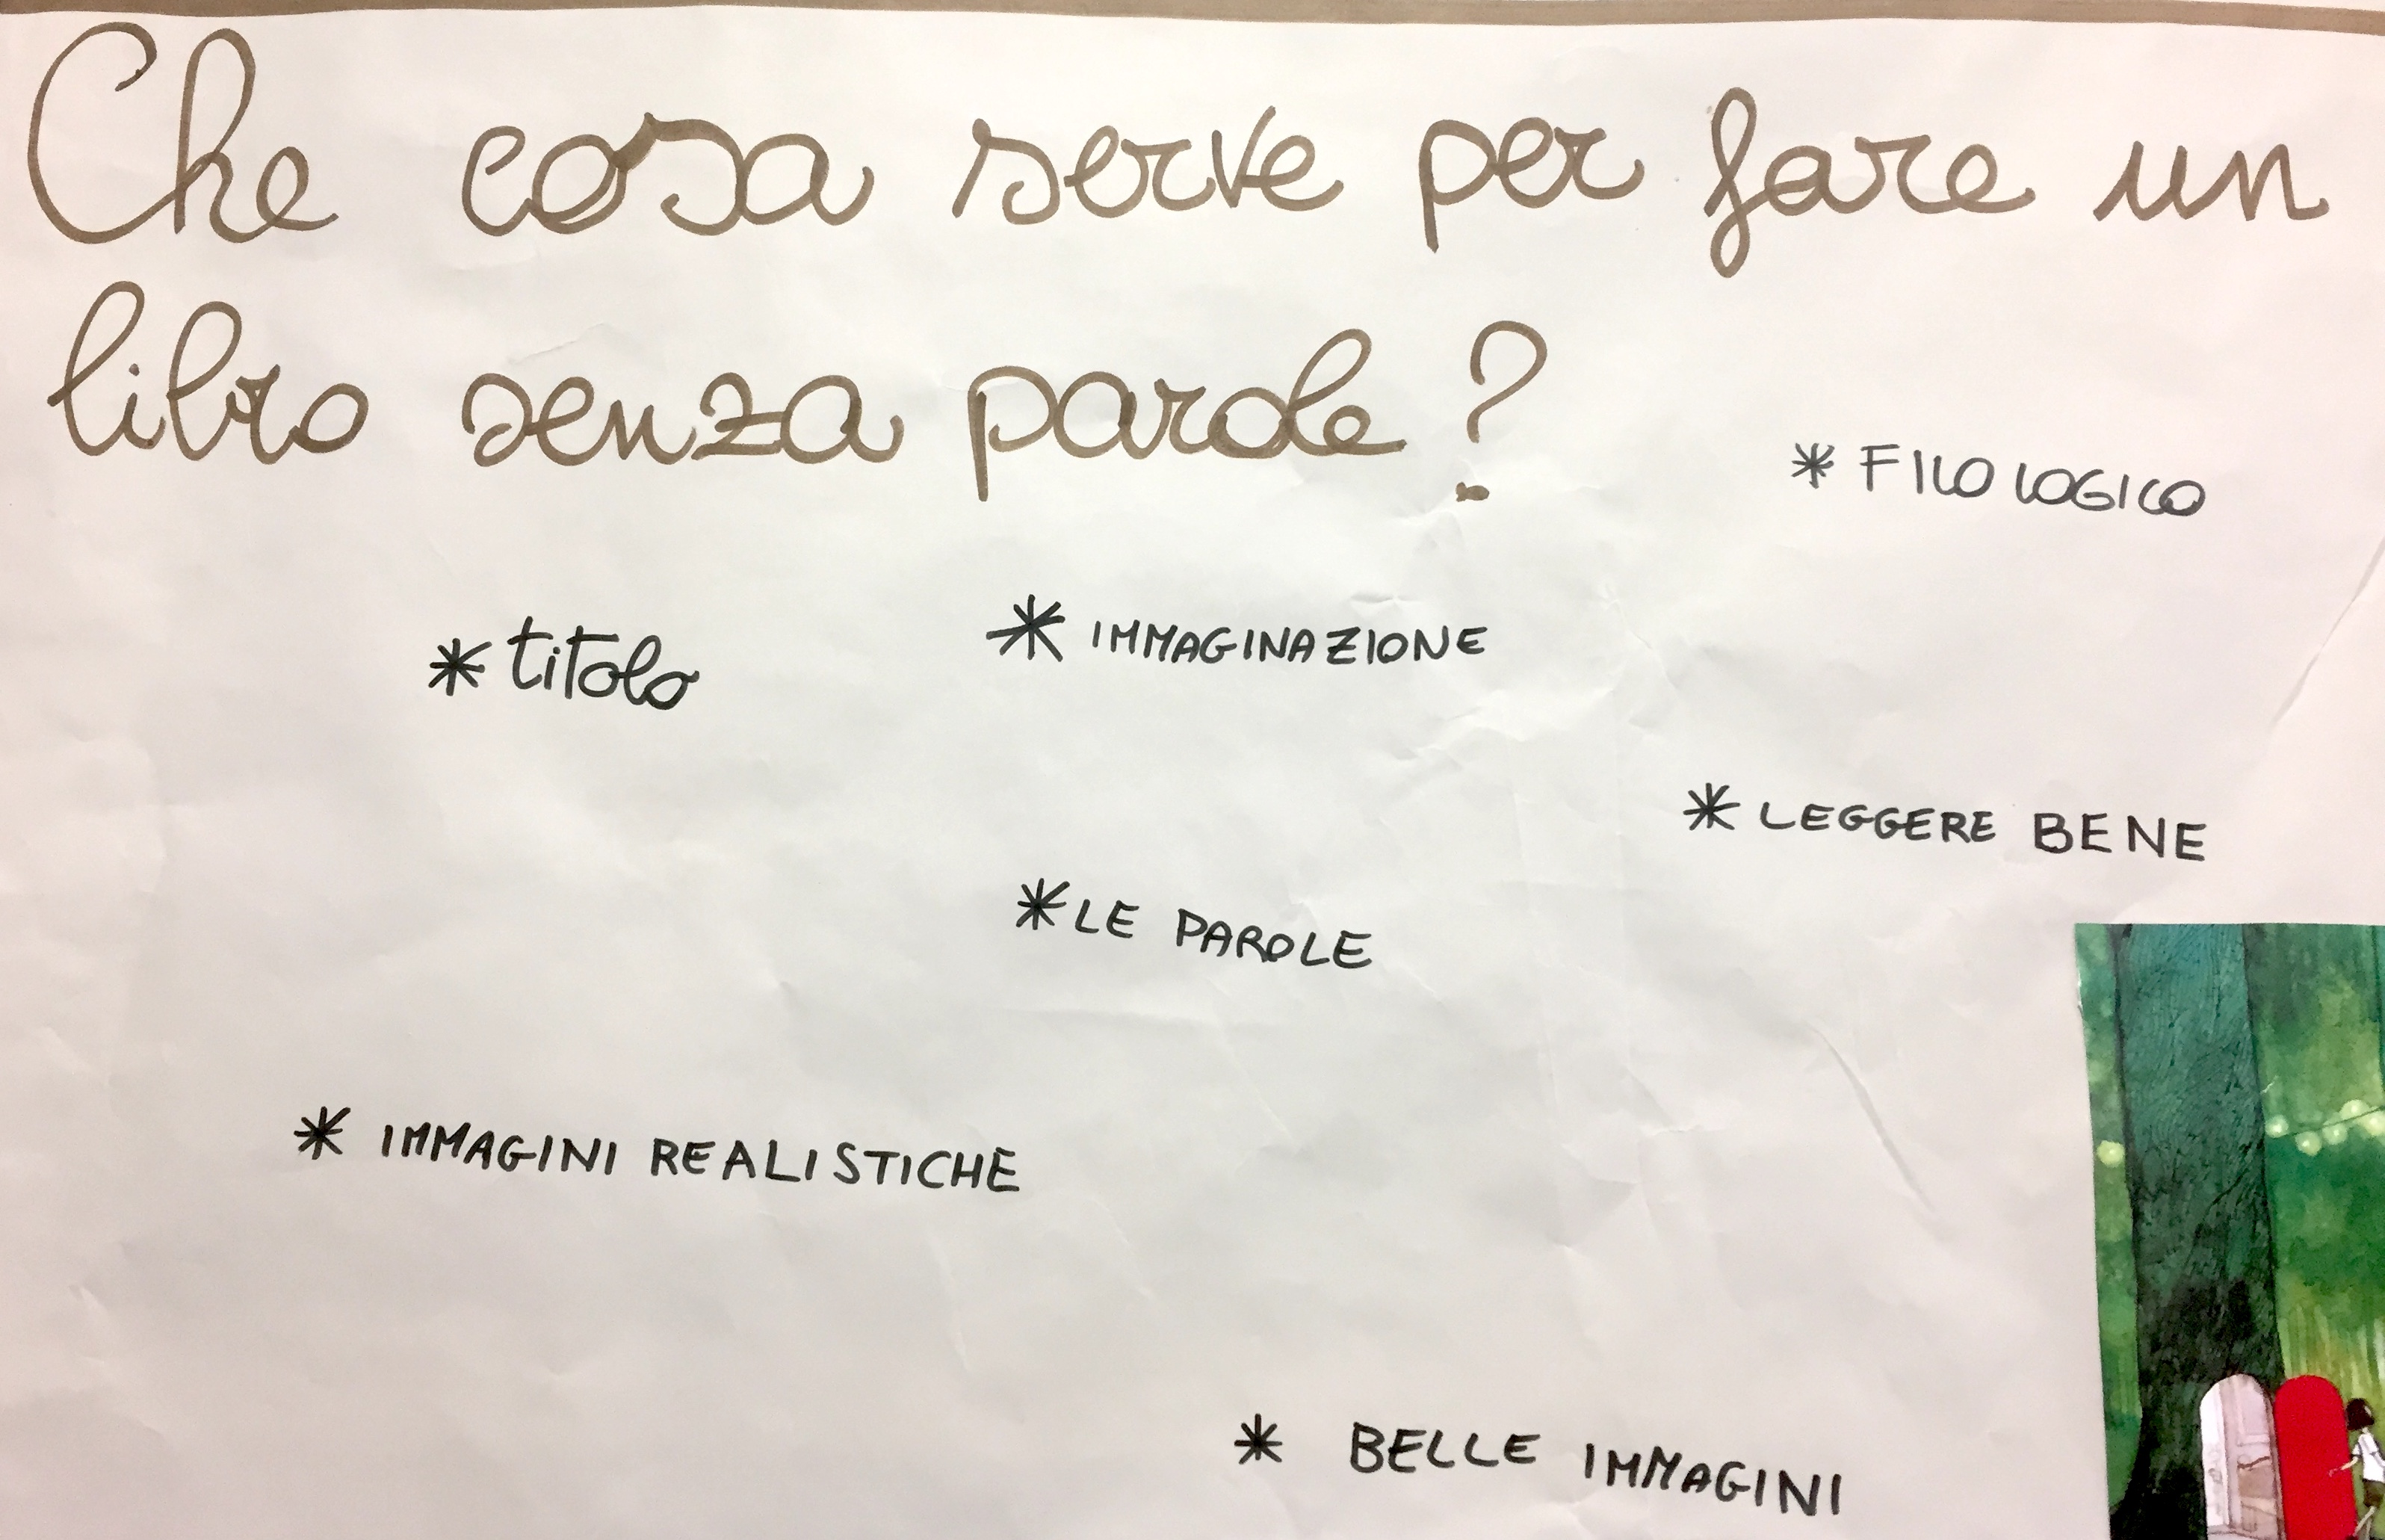 Che cosa serve per fare un
libro senza parole?
* FILO LOGICO
* titolo
* IMMAGINAZIONE
* LEGGERE BENE
* LE PAROLE
* IMMAGINI REALISTICHE
* BELLE IMMAGINI